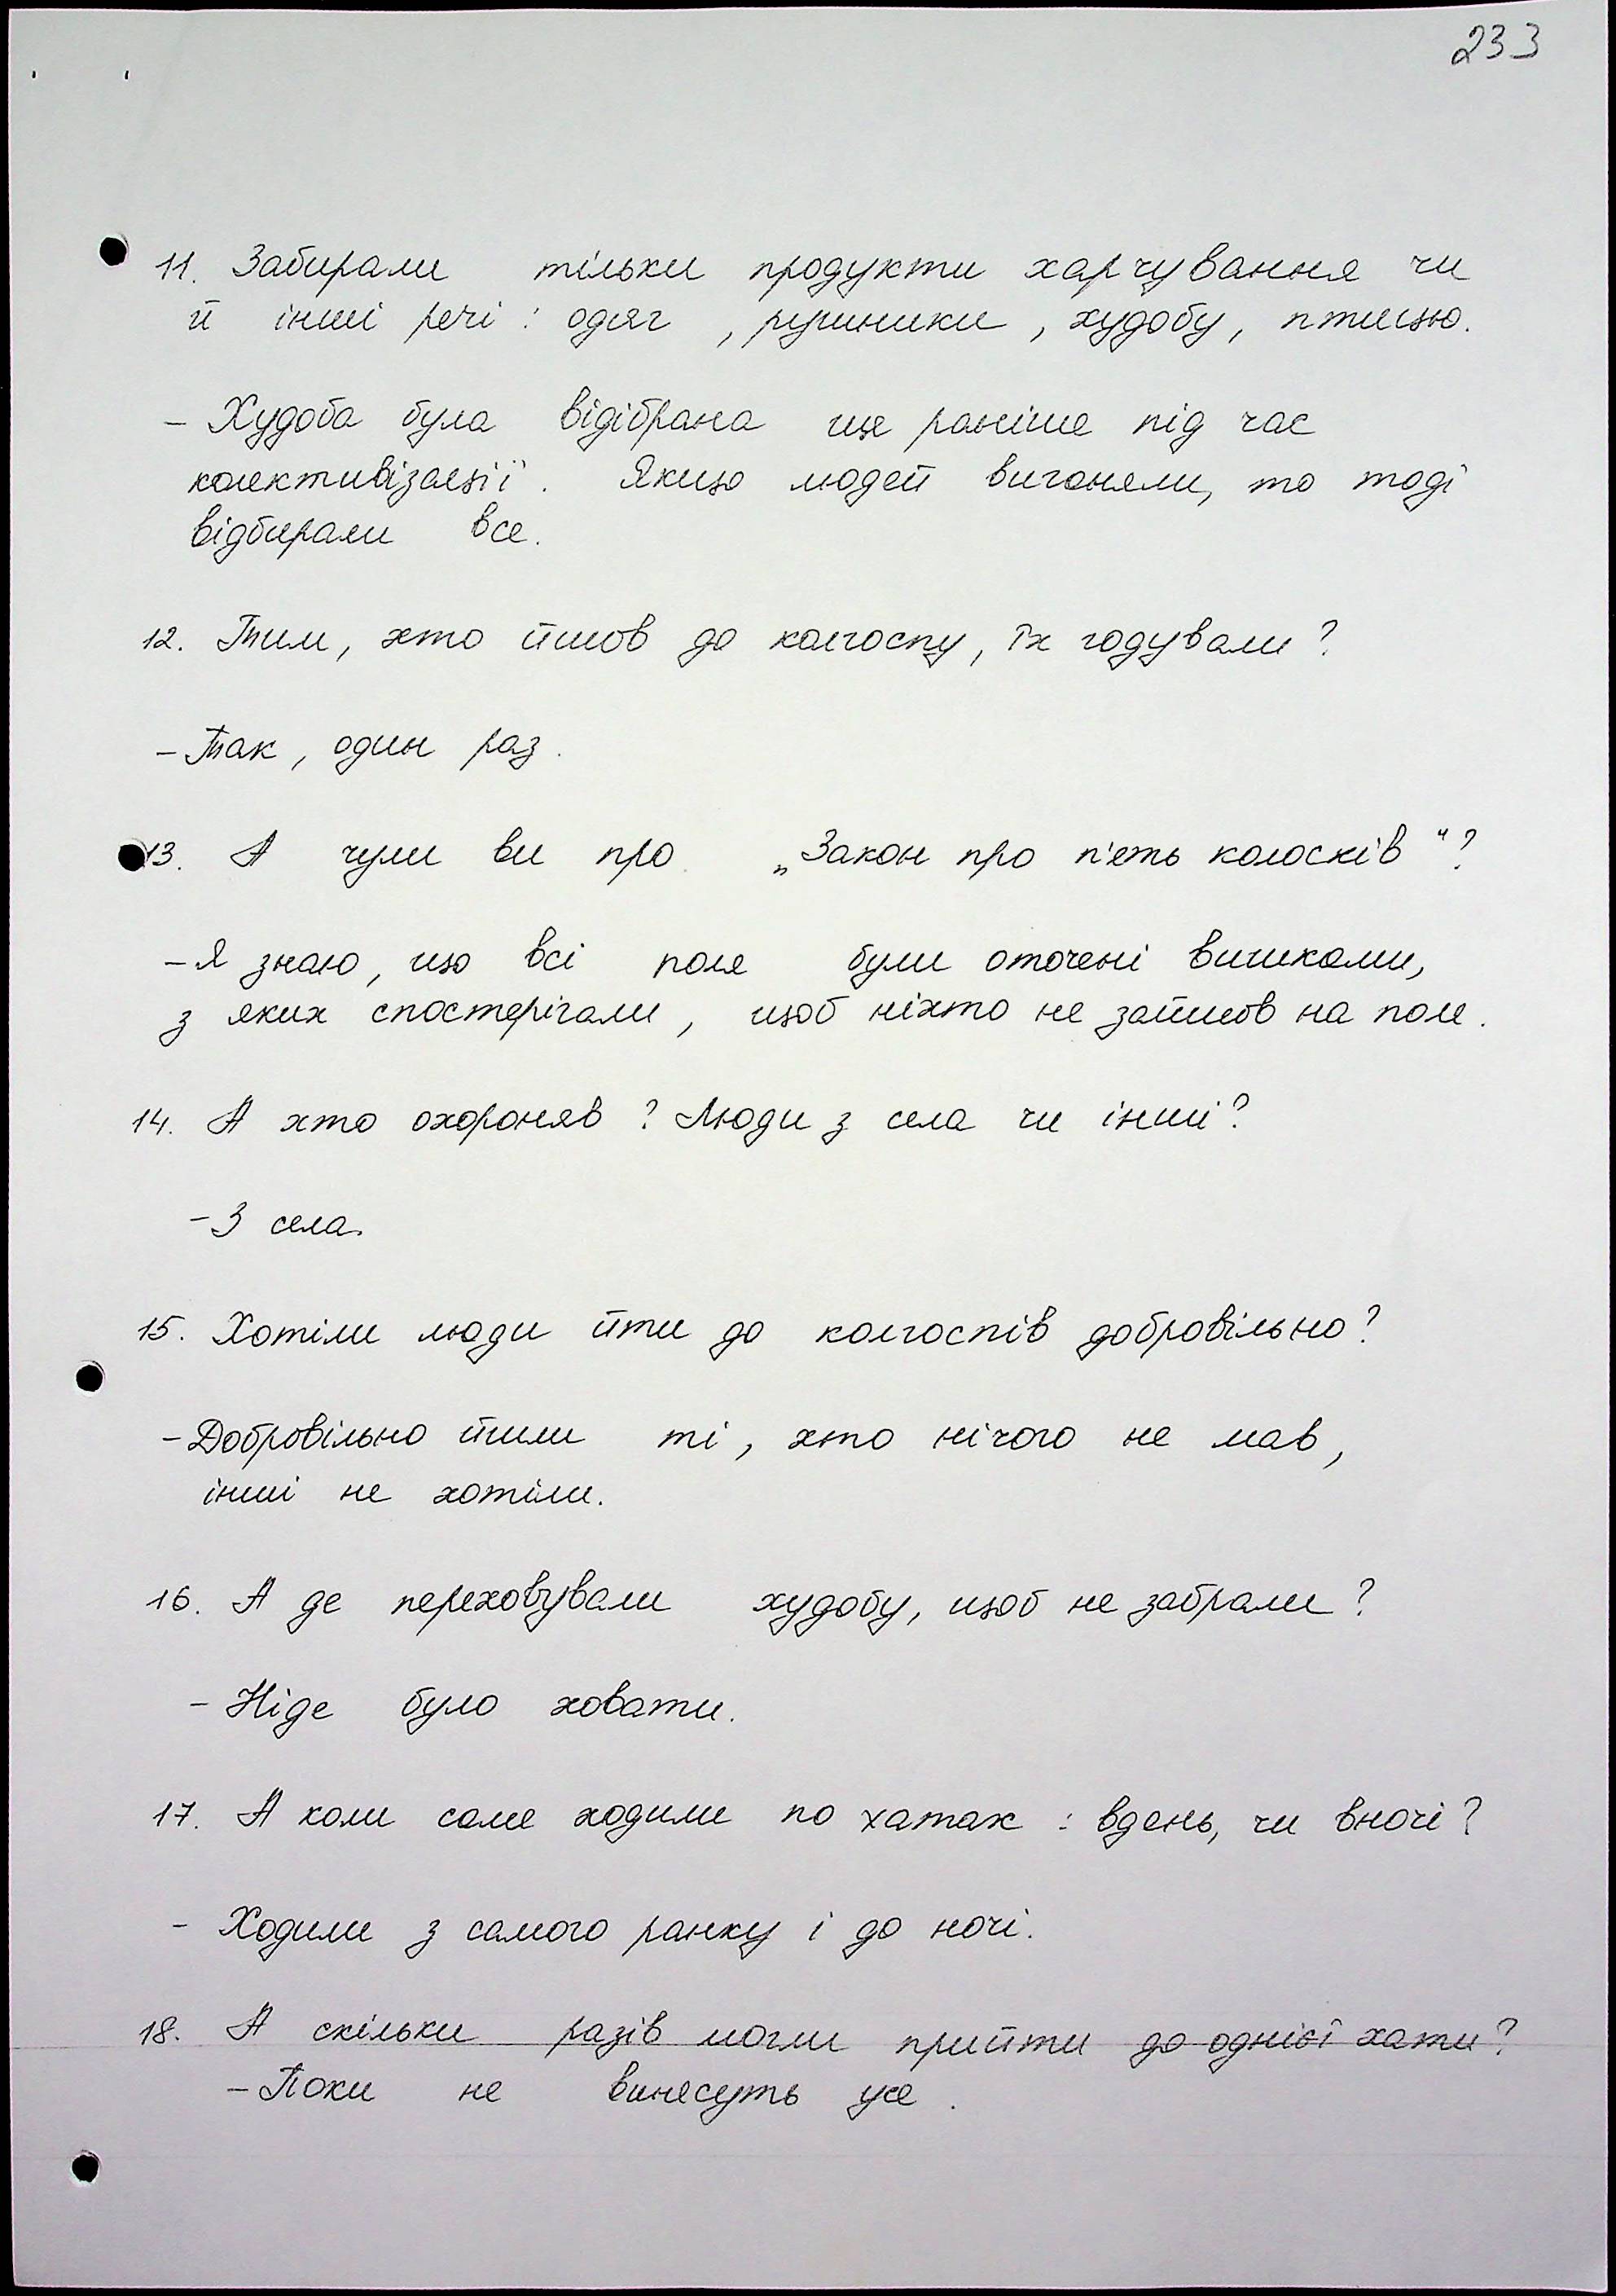 233
11. Забирали тільки продукти харчування чи
й інші речі: одяг, рушники, худобу, птицю.
- Худоба була відібрана ще раніше під час
колективізації. Якщо людей виганяли, то тоді
відбирали все.
12. Тим, хто йшов до колгоспу, їх годували?
- Так, один раз.
13. А чули ви про „Закон про п'ять колосків"?
- Я знаю, що всі поля були оточені вишками,
з яких спостерігали, щоб ніхто не зайшов на поле.
14. А хто охороняв? Люди з села чи інші?
- З села.
15. Хотіли люди йти до колгоспів добровільно?
- Добровільно йшли ті, хто нічого не мав,
інші не хотіли.
16. А де переховували худобу, щоб не забрали?
- Ніде було ховати.
17. А коли саме ходили по хатах: вдень, чи вночі?
- Ходили з самого ранку і до ночі.
18. А скільки разів могли прийти до однієї хати?
- Поки не винесуть усе.